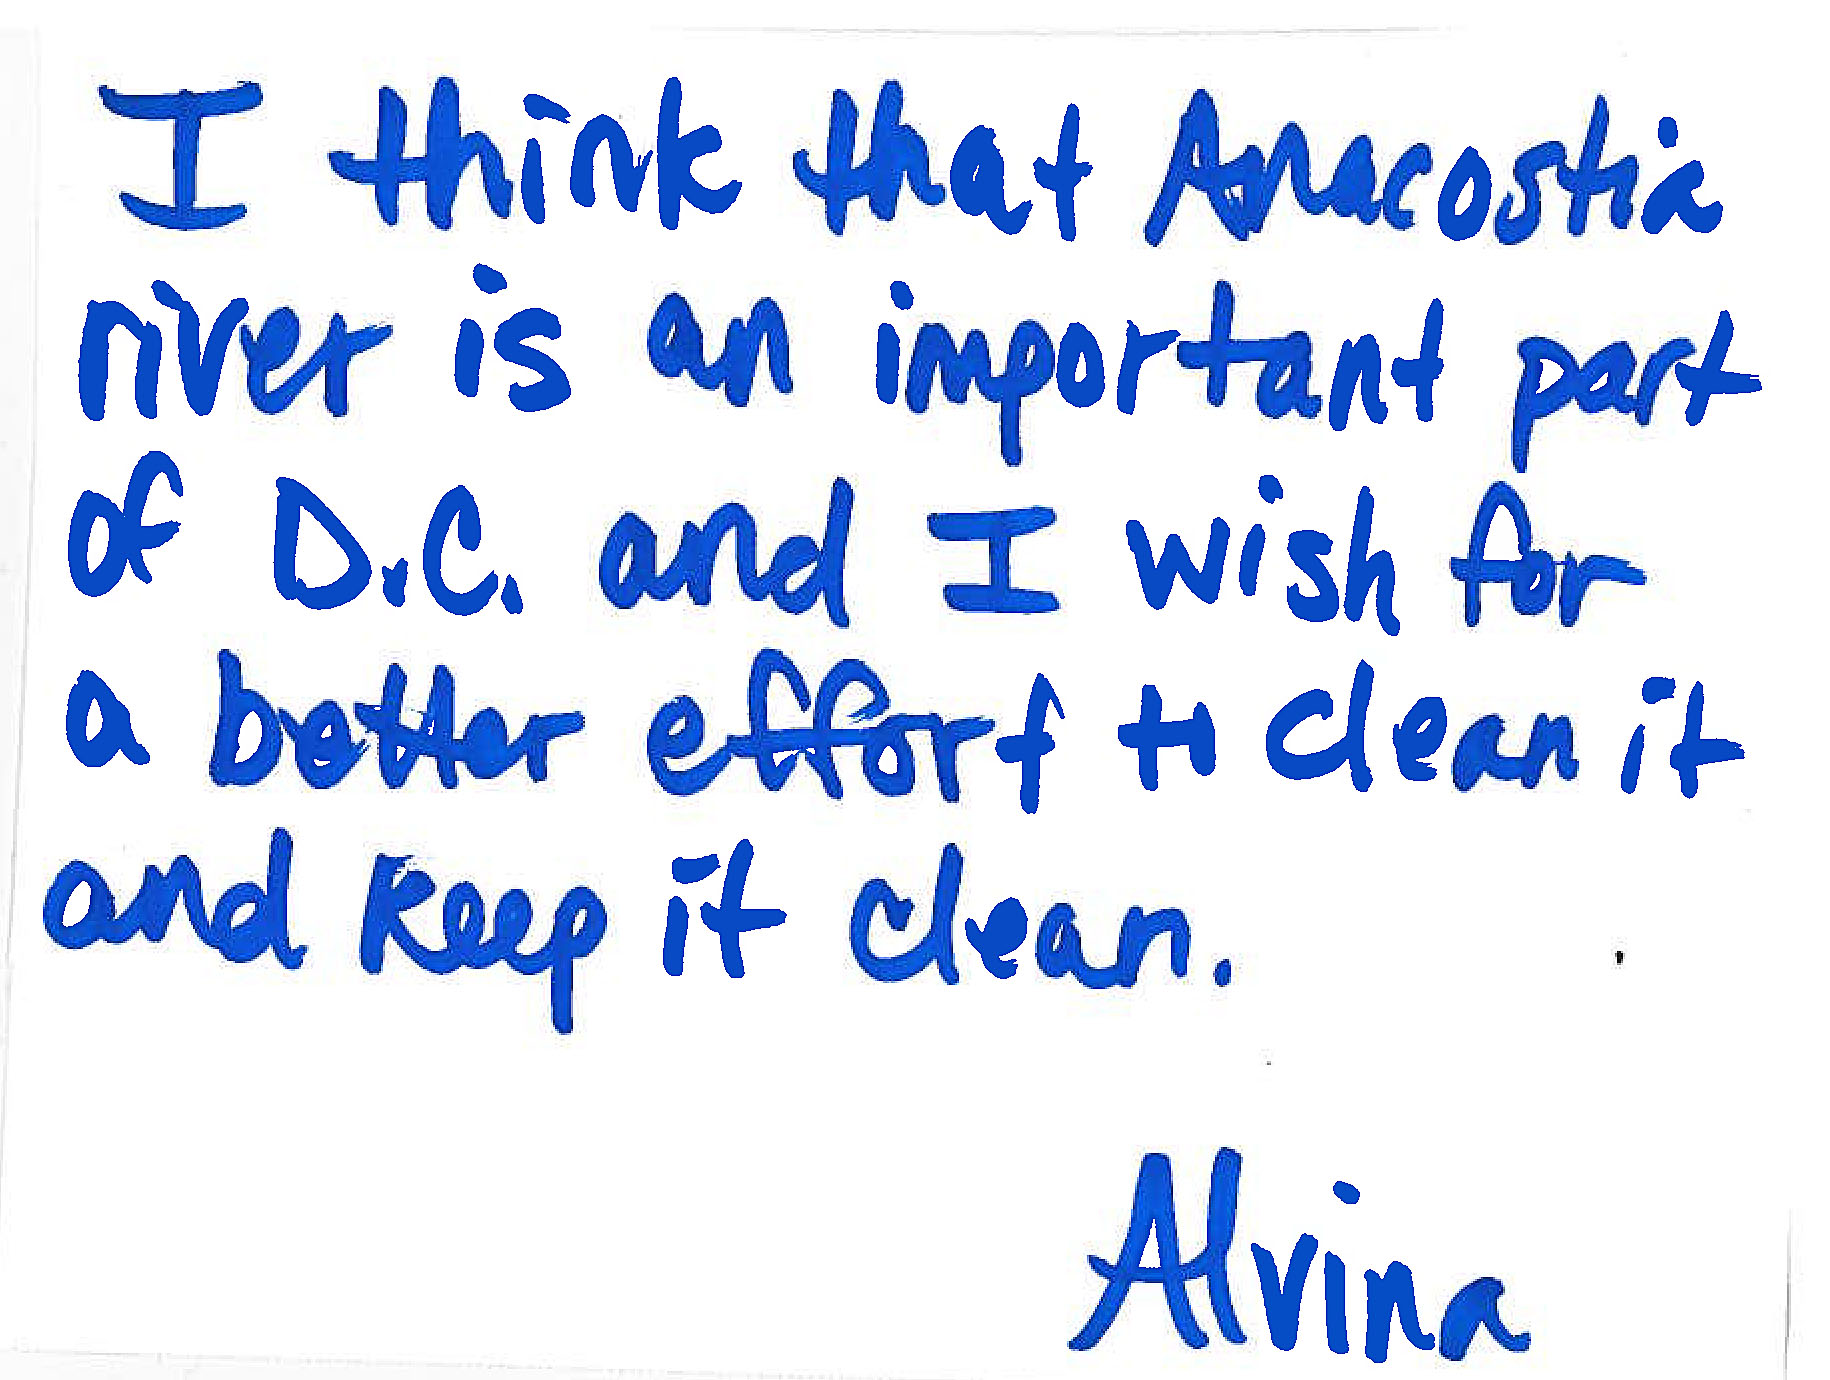 I think that Anacostia
river is an important part
of D.C. and I wish for
a better effort to clean it
and keep it clean.
Alvina